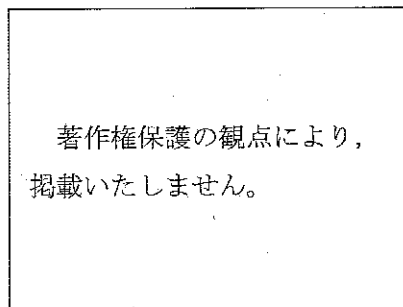 著作権保護の観点により，
掲載いたしません。